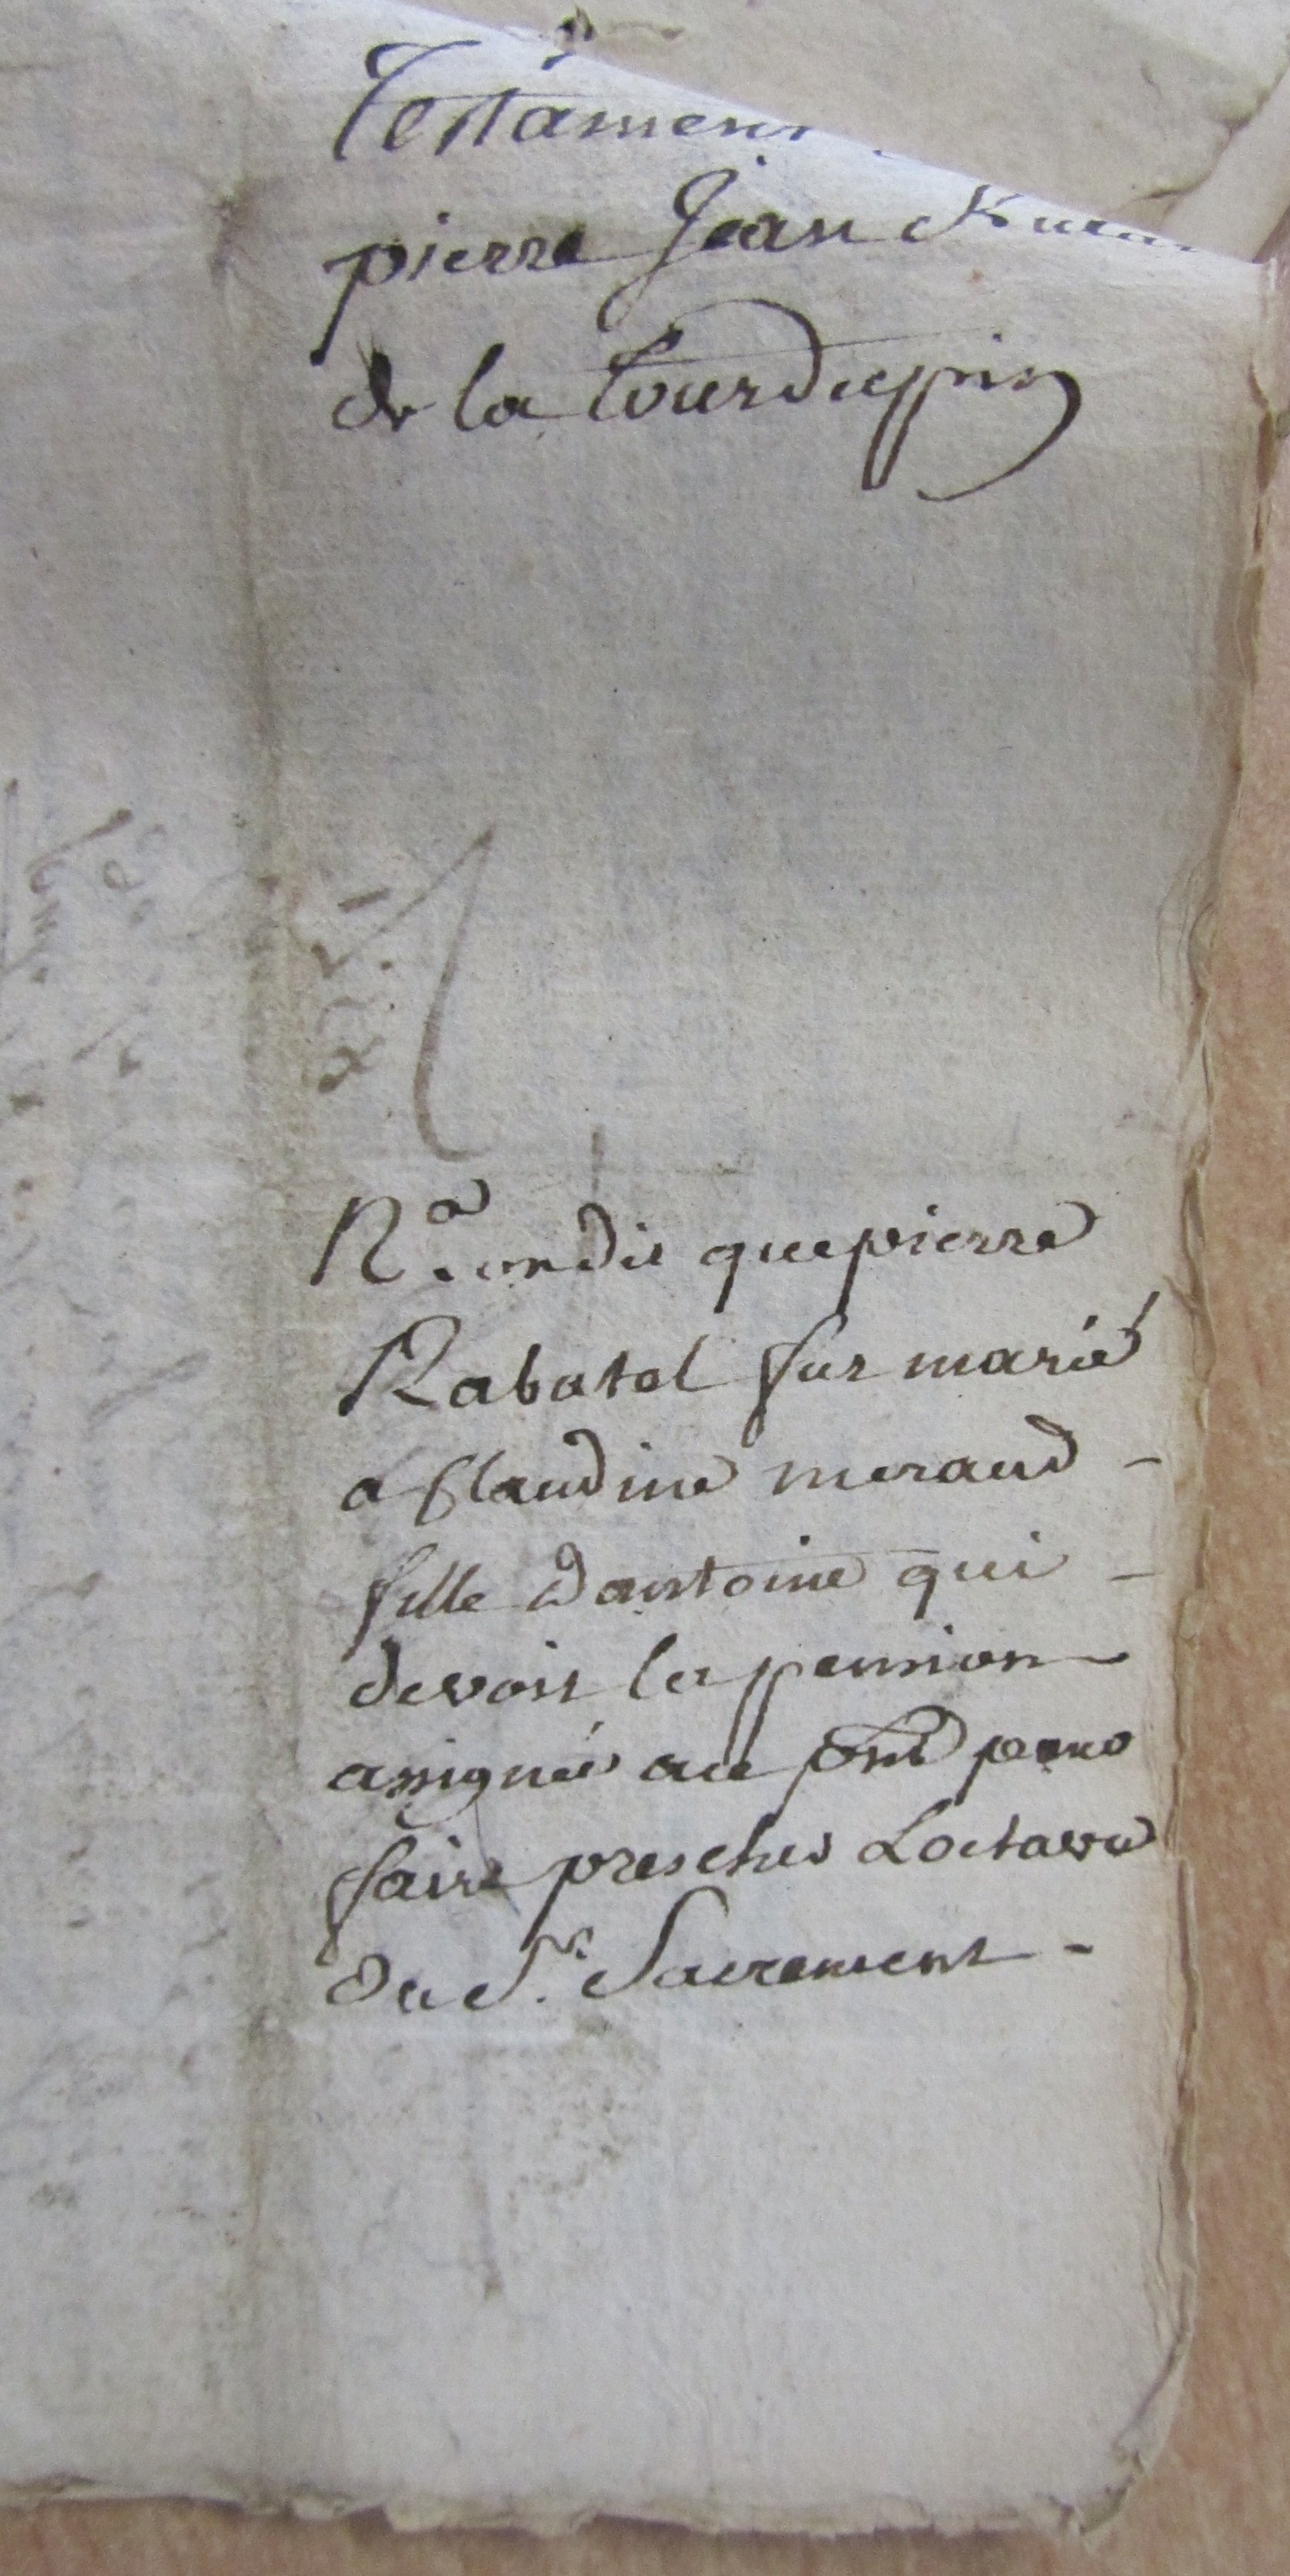 Testament
pierre Jean
de la tourdupin
Na. on dit que pierre
Rabatel fut marié
a Claudine meraud -
fille d'antoine qui -
devoit la pension
assignée au pnt pour
faire prescher Loctave
du St. Sacrement -